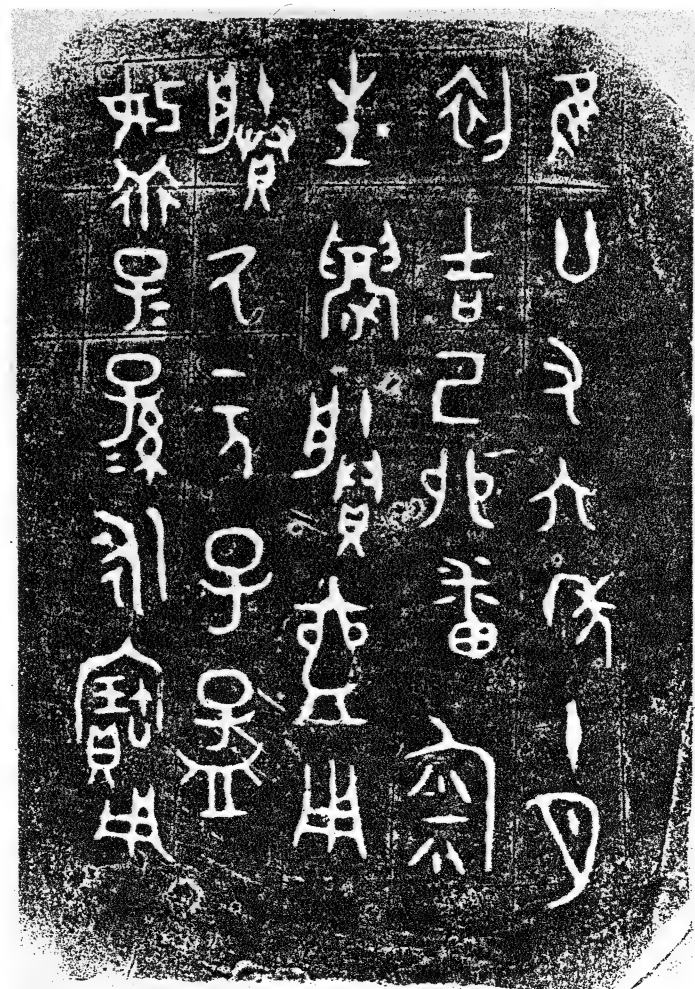 隹廿又六年十月
初吉己卯番匊
生鑄賸壺用
賸氒元子孟
妃乖子=孫=永寶用